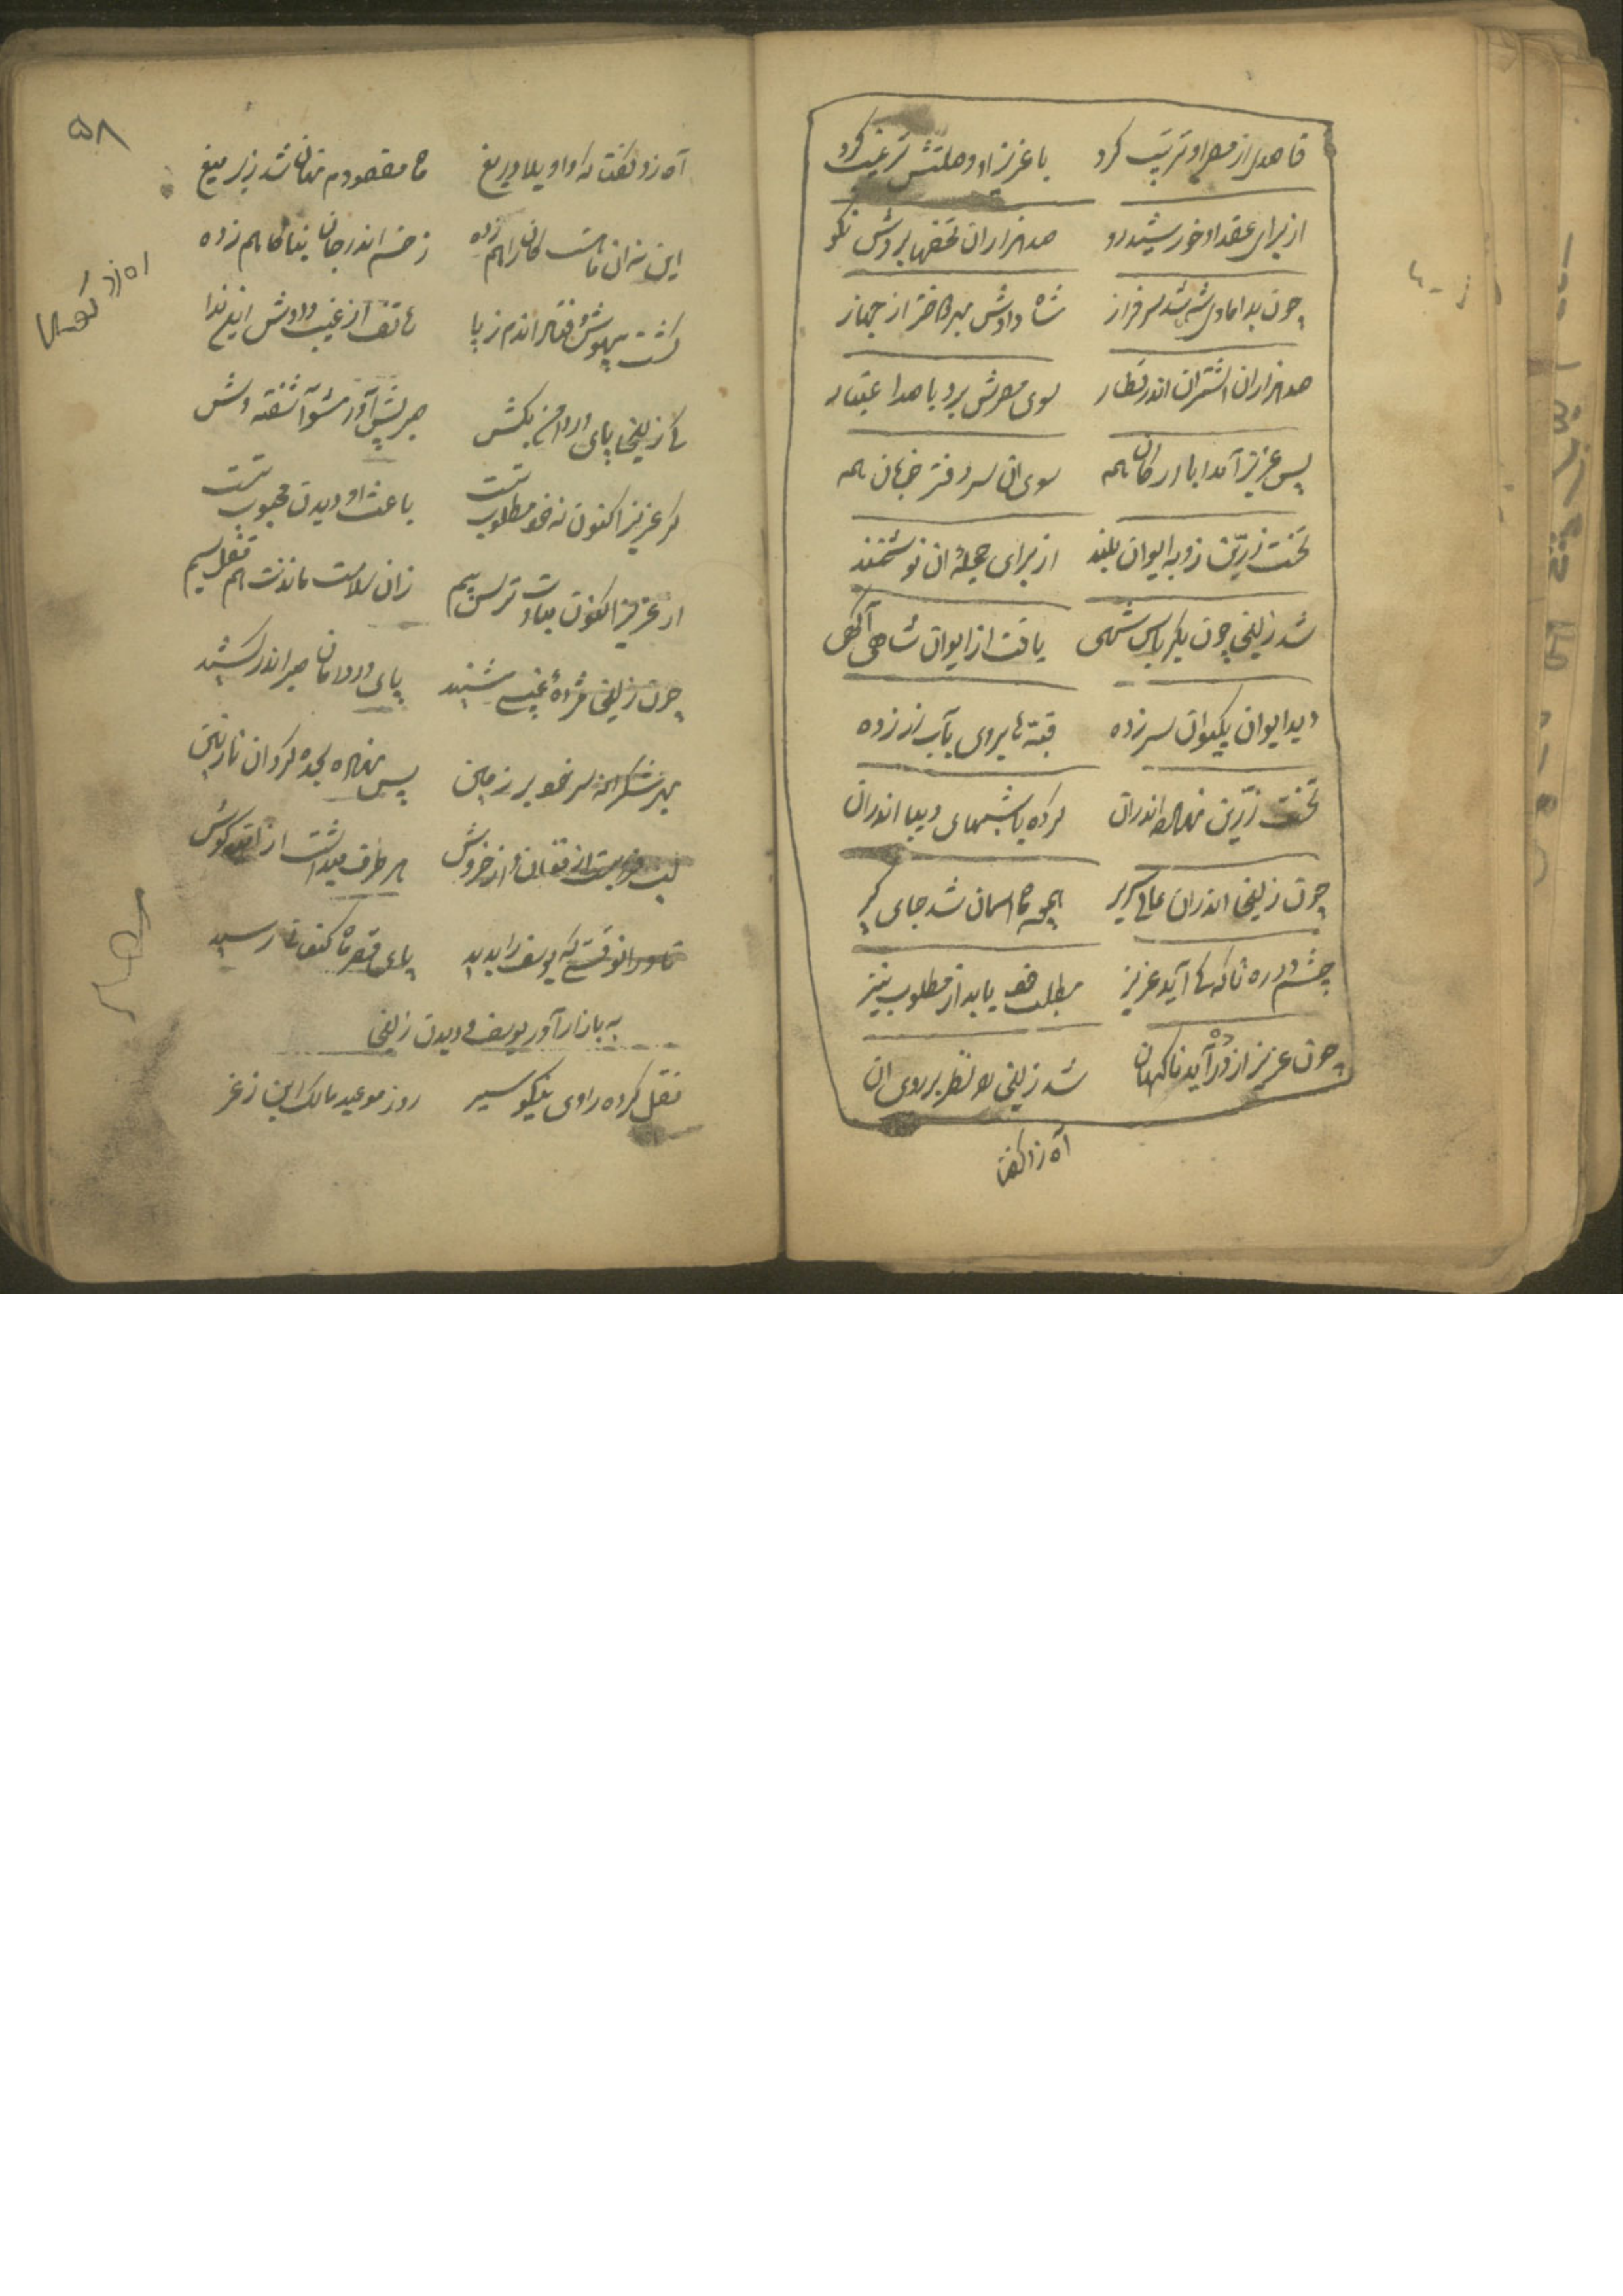 قاصدی از مصر او ترتیب کرد با عزیز او وصلتش ترغیب کرد
از برای عقد او خورشید رو صد هزاران تحفها بردش نکو
چون بدامادی شه شد سرفراز شاه دادش بهر دختر از جهاز
صد هزاران اشتران اندر قطار سوی مصرش برد با صد اعتبار
پس عزیز آمد ابا ارکان همه سوی ان سر دفتر خوبان همه
تخت زرّین زد به ایوان بلند از برای حجلهٔ ان نوشمند
شد زلیخی چون شهی یافت از ایوان شاهی آگهی
دید ایوان بکیوان سر زده قبّه ها بروی بآب زر زده
تخت زرّین نهاده اندران کرده بالشهای دیبا اندران
چون زلیخی اندران عالی سریر همچو ماه اسمان شد جای گیر
چشم در ره تا که کی آید عزیز مطلب خود یابد از مطلوب نیز
چون عزیز از در درآید ناکهان شد زلیخی را نظر بر روی ان
آه زد گفتا
۵۸
آه زد و گفتا که واویلا دریغ ماه مقصودم نهان شد زیر میغ
این نه ان ماهست کان راهم زده زخم اندر جان بناکاهم زده
گشت بیهوش و فتاد اندم ز پا هاتف از غیب دادش این ندا
کای زلیخی پای در دامن بکش صبر پیش آور مشو آشفته وش
گر عزیز اکنون نه خود مطلوب تست باعث او دیدن محبوب تست
از عزیز اکنون مبادت ترس و بیم زان سلامت ماندنت هم قفل سیم
چون زلیخی مژدهٔ غیبی شنید پای در دامان صبر اندر کشید
بهر شکرانه سر خود بر زمین پس نهاده سجده کرد ان نازنین
لب فروبست از فغان و از خروش هر طرف میداشت از کوش
تا در انوقتی که یوسف را بدید پای قصر ماه کنعان رسید
به بازار آوردن یوسف و دیدن زلیخی
نقل کرده راوی نیکو سیر روز موعید مالک این ز غر
آه زد گفتا